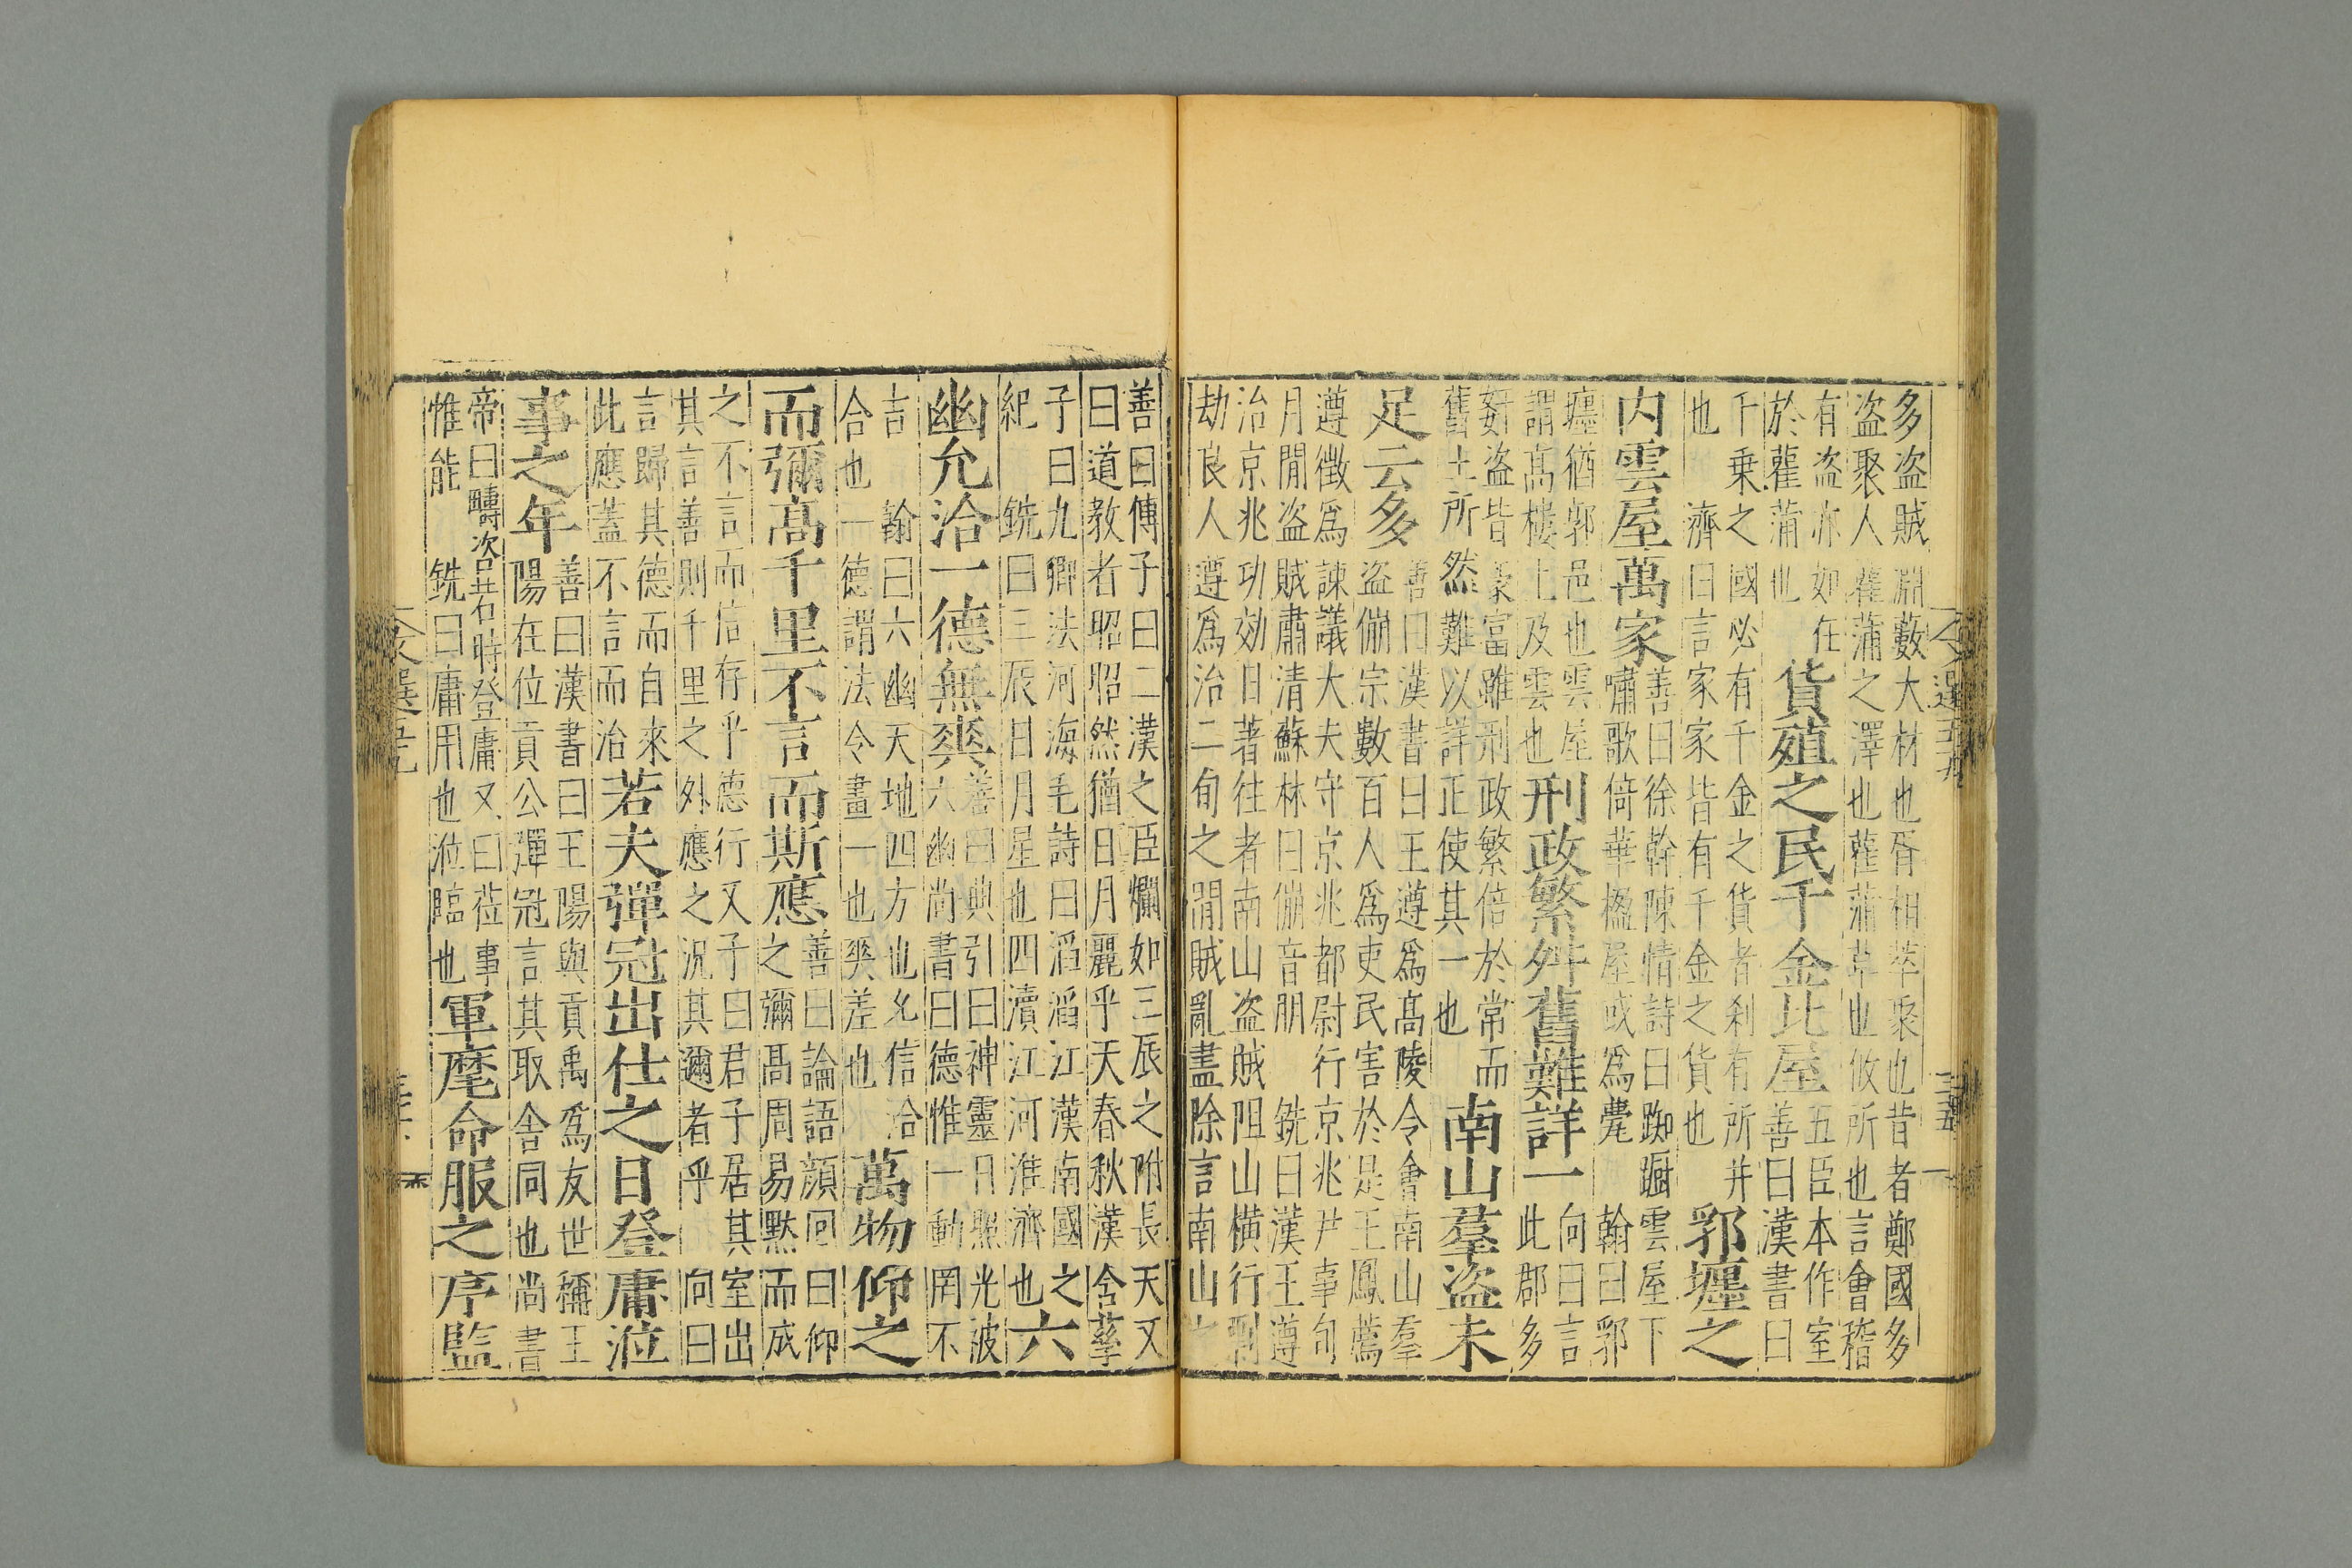 多盜賊淵藪大材也胥相萃聚也昔者鄭國多
盜聚人雚蒲之澤也雚蒲草也攸所也言會稽
有盜亦如在
於雚蒲也
貨殖之民千金比屋
五臣本作室
善曰漢書曰
千乗之國必有千金之貨者利有所并
也 濟曰言家家皆有千金之貨也
郛壥之
内雲屋萬家
善曰徐幹陳情詩曰踟躕雲屋下
嘯歌倚華楹屋或爲甍 翰曰郛
壥猶郭邑也雲屋
謂髙樓上及雲也
刑政繁舛舊難詳一
向曰言
此郡多
姧盜皆豪富雖刑政繁倍於常而
舊土所然難以詳正使其一也
南山羣盜未
足云多
善曰漢書曰王遵爲髙陵令會南山羣
盜傰宗數百人爲吏民害於是王鳳薦
遵徵爲諫議大夫守京兆都尉行京兆尹事旬
月閒盜賊肅清蘇林曰傰音朋 銑曰漢王遵
治京兆功効日著往者南山盜賊阻山橫行剽
劫良人遵爲治二旬之閒賊亂盡除言南山
文選五十九
三十五
善曰傅子曰二漢之臣爛如三辰之附長天又
曰道教者昭昭然猶日月麗乎天春秋漢含孳
子曰九卿法河海毛詩曰滔滔江漢南國之
紀 銑曰三辰日月星也四瀆江河淮濟也
六
幽允洽一德無爽
善曰典引曰神靈日照光被
六幽尚書曰德惟一動罔不
吉 翰曰六幽天地四方也允信洽
合也一德謂法令畫一也爽差也
萬物仰之
而彌髙千里不言而斯應
善曰論語顏回曰仰
之彌髙周易黙而成
之不言而信存乎德行又子曰君子居其室出
其言善則千里之外應之況其邇者乎 向曰
言歸其德而自來
此應蓋不言而治
若夫彈冠出仕之日登庸涖
事之年
善曰漢書曰王陽與貢禹爲友世稱王
陽在位貢公彈冠言其取舍同也尚書
帝曰疇咨若時登庸又曰莅事
惟能 銑曰庸用也涖臨也
軍麾命服之序監